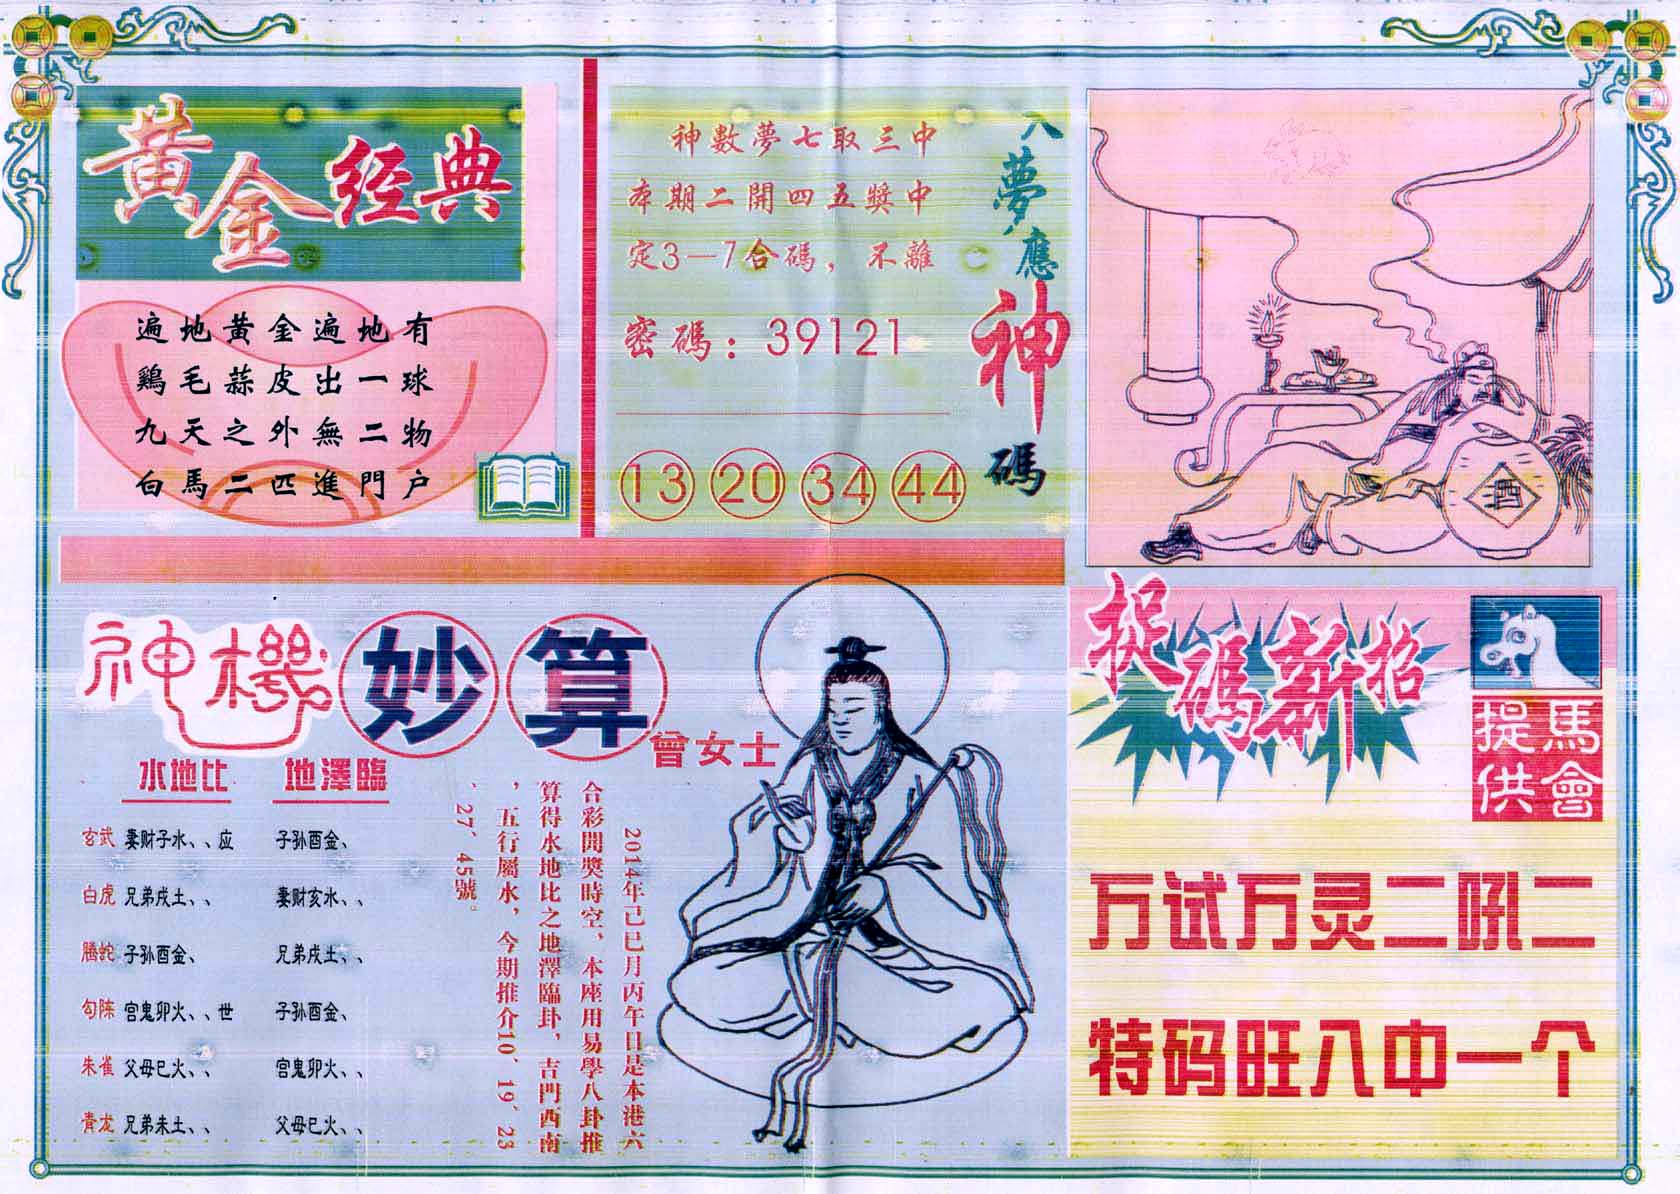 黄金经典
遍地黄金遍地有
鷄毛蒜皮出一球
九天之外無二物
白馬二匹進門户
神數夢七取三中
本期二開四五獎中
定3—7合碼，不離
密碼：39121
13 20 34 44
入夢應神碼
酒
神機妙算
曾女士
水地比 地澤臨
玄武 妻财子水、、应 子孙酉金、
白虎 兄弟戌土、、 妻财亥水、、
腾蛇 子孙酉金、 兄弟戌土、、
勾陈 宫鬼卯火、、世 子孙酉金、
朱雀 父母巳火、、 宫鬼卯火、、
青龙 兄弟未土、、 父母巳火、、
2014年己巳月丙午日是本港六
合彩開獎時空，本座用易學八卦推
算得水地比之地澤臨卦，吉門西南
，五行屬水，今期推介10、19、23
、27、45號。
捉碼新招
馬會
提供
万试万灵二吼二
特码旺入中一个